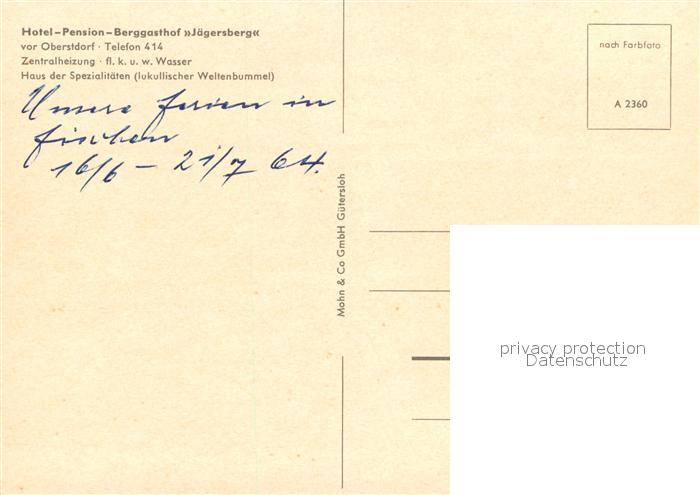 Hotel–Pension–Berggasthof »Jägersberg«
vor Oberstdorf · Telefon 414
Zentralheizung · fl. k. u. w. Wasser
Haus der Spezialitäten (lukullischer Weltenbummel)
Unsere ferien in
fischen
16/6 – 21/7 64.
nach Farbfoto
A 2360
Mohn & Co GmbH Gütersloh
privacy protection
Datenschutz